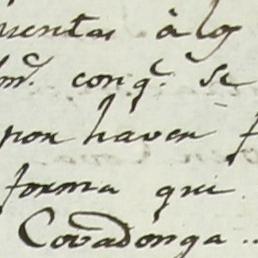 uentas â los
m.ᵉ conq.ᵉ se
por haver
forma que
Covadonga..